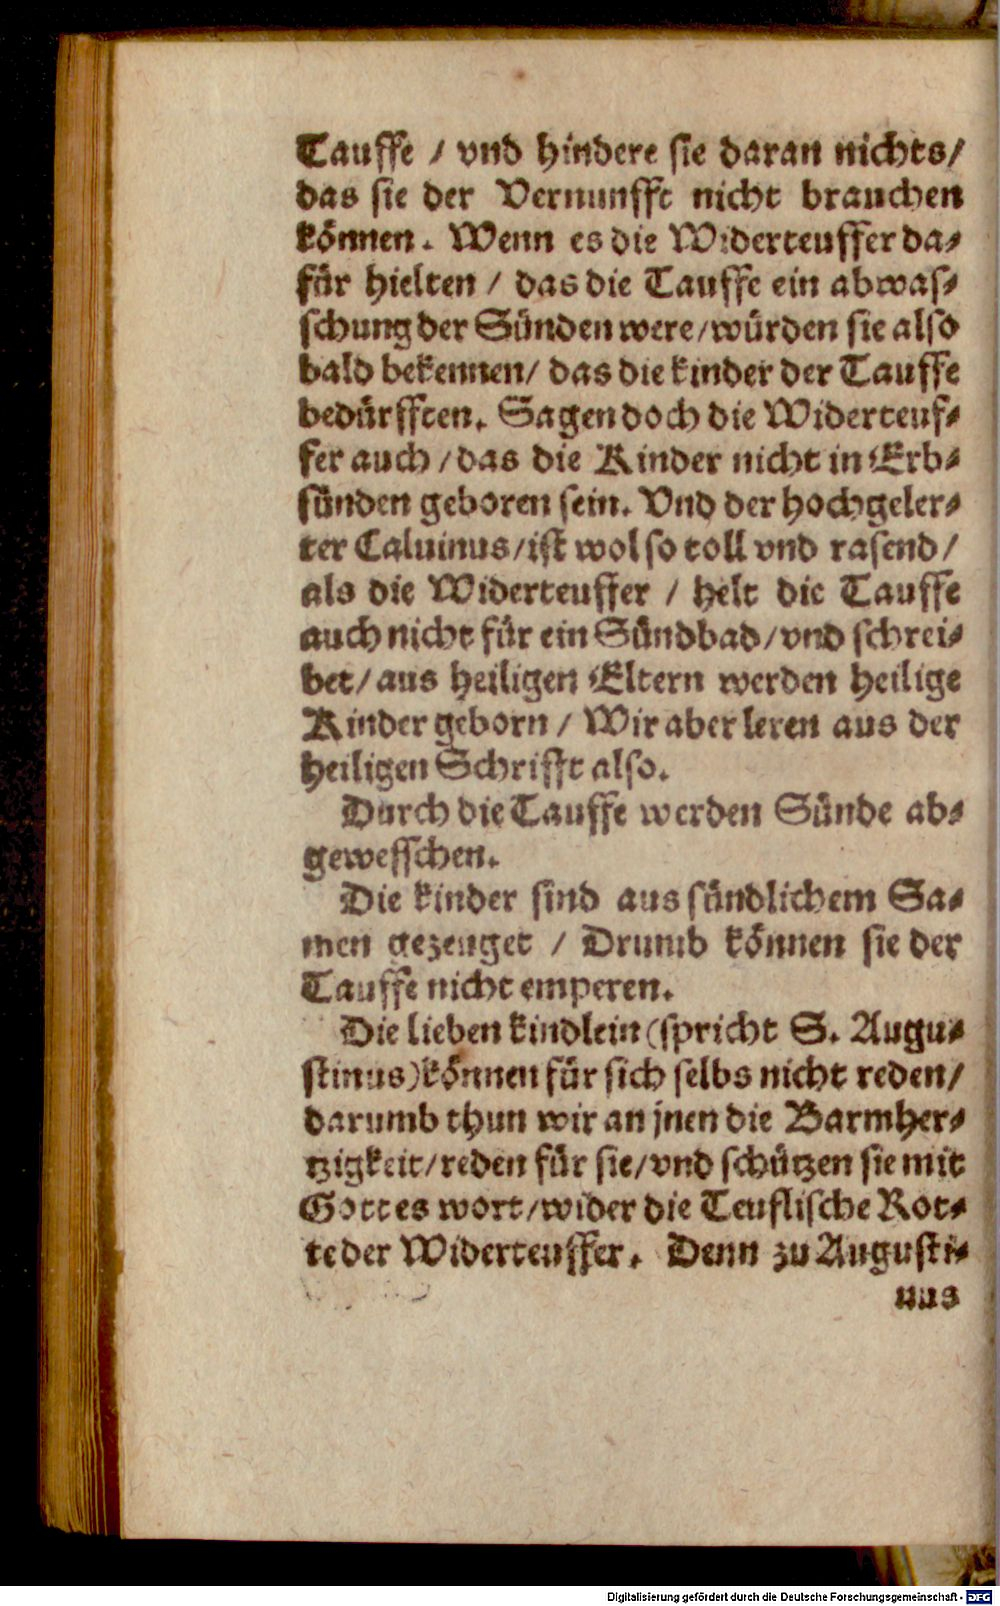 Tauffe / vnd hindere sie daran nichts/
das sie der Vernunfft nicht brauchen
können. Wenn es die Widerteuffer da-
für hielten / das die Tauffe ein abwas-
schung der Sünden were/würden sie also
bald bekennen/ das die kinder der Tauffe
bedürfften. Sagen doch die Widerteuf-
fer auch / das die Kinder nicht in Erb-
sünden geboren sein. Vnd der hochgeler-
ter Caluinus/ist wol so toll vnd rasend/
als die Widerteuffer / helt die Tauffe
auch nicht für ein Sündbad/vnd schrei-
bet/ aus heiligen Eltern werden heilige
Kinder geborn / Wir aber leren aus der
heiligen Schrifft also.
Durch die Tauffe werden Sünde ab-
gewesschen.
Die kinder sind aus sündlichem Sa-
men gezeuget / Drumb können sie der
Tauffe nicht emperen.
Die lieben kindlein (spricht S. Augu-
stinus) können für sich selbs nicht reden/
darumb thun wir an jnen die Barmher-
tzigkeit/reden für sie/vnd schützen sie mit
Gottes wort/wider die Teuflische Rot-
te der Widerteuffer. Denn zu Augusti-
nus
Digitalisierung gefördert durch die Deutsche Forschungsgemeinschaft - DFG